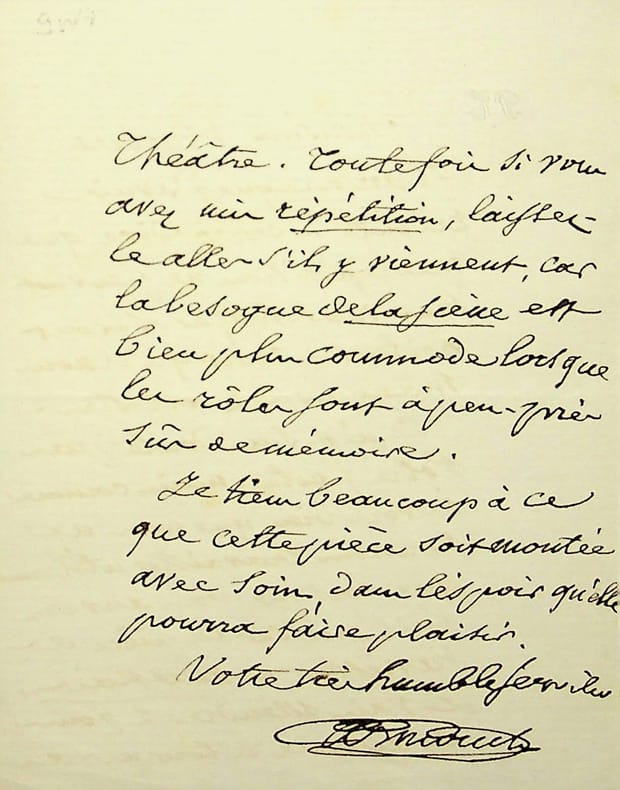 Théâtre. Toutefois si vous
avez mis répétition, laissez-
le aller s'ils y viennent, car
la besogne de la scène est
bien plus commode lorsque
les rôles sont à peu-près
sûr de mémoire.
Je tiens beaucoup à ce
que cette pièce soit montée
avec soin, dans l'éspoir qu'elle
pourra fáire plaisir.
Votre très humble serviteur